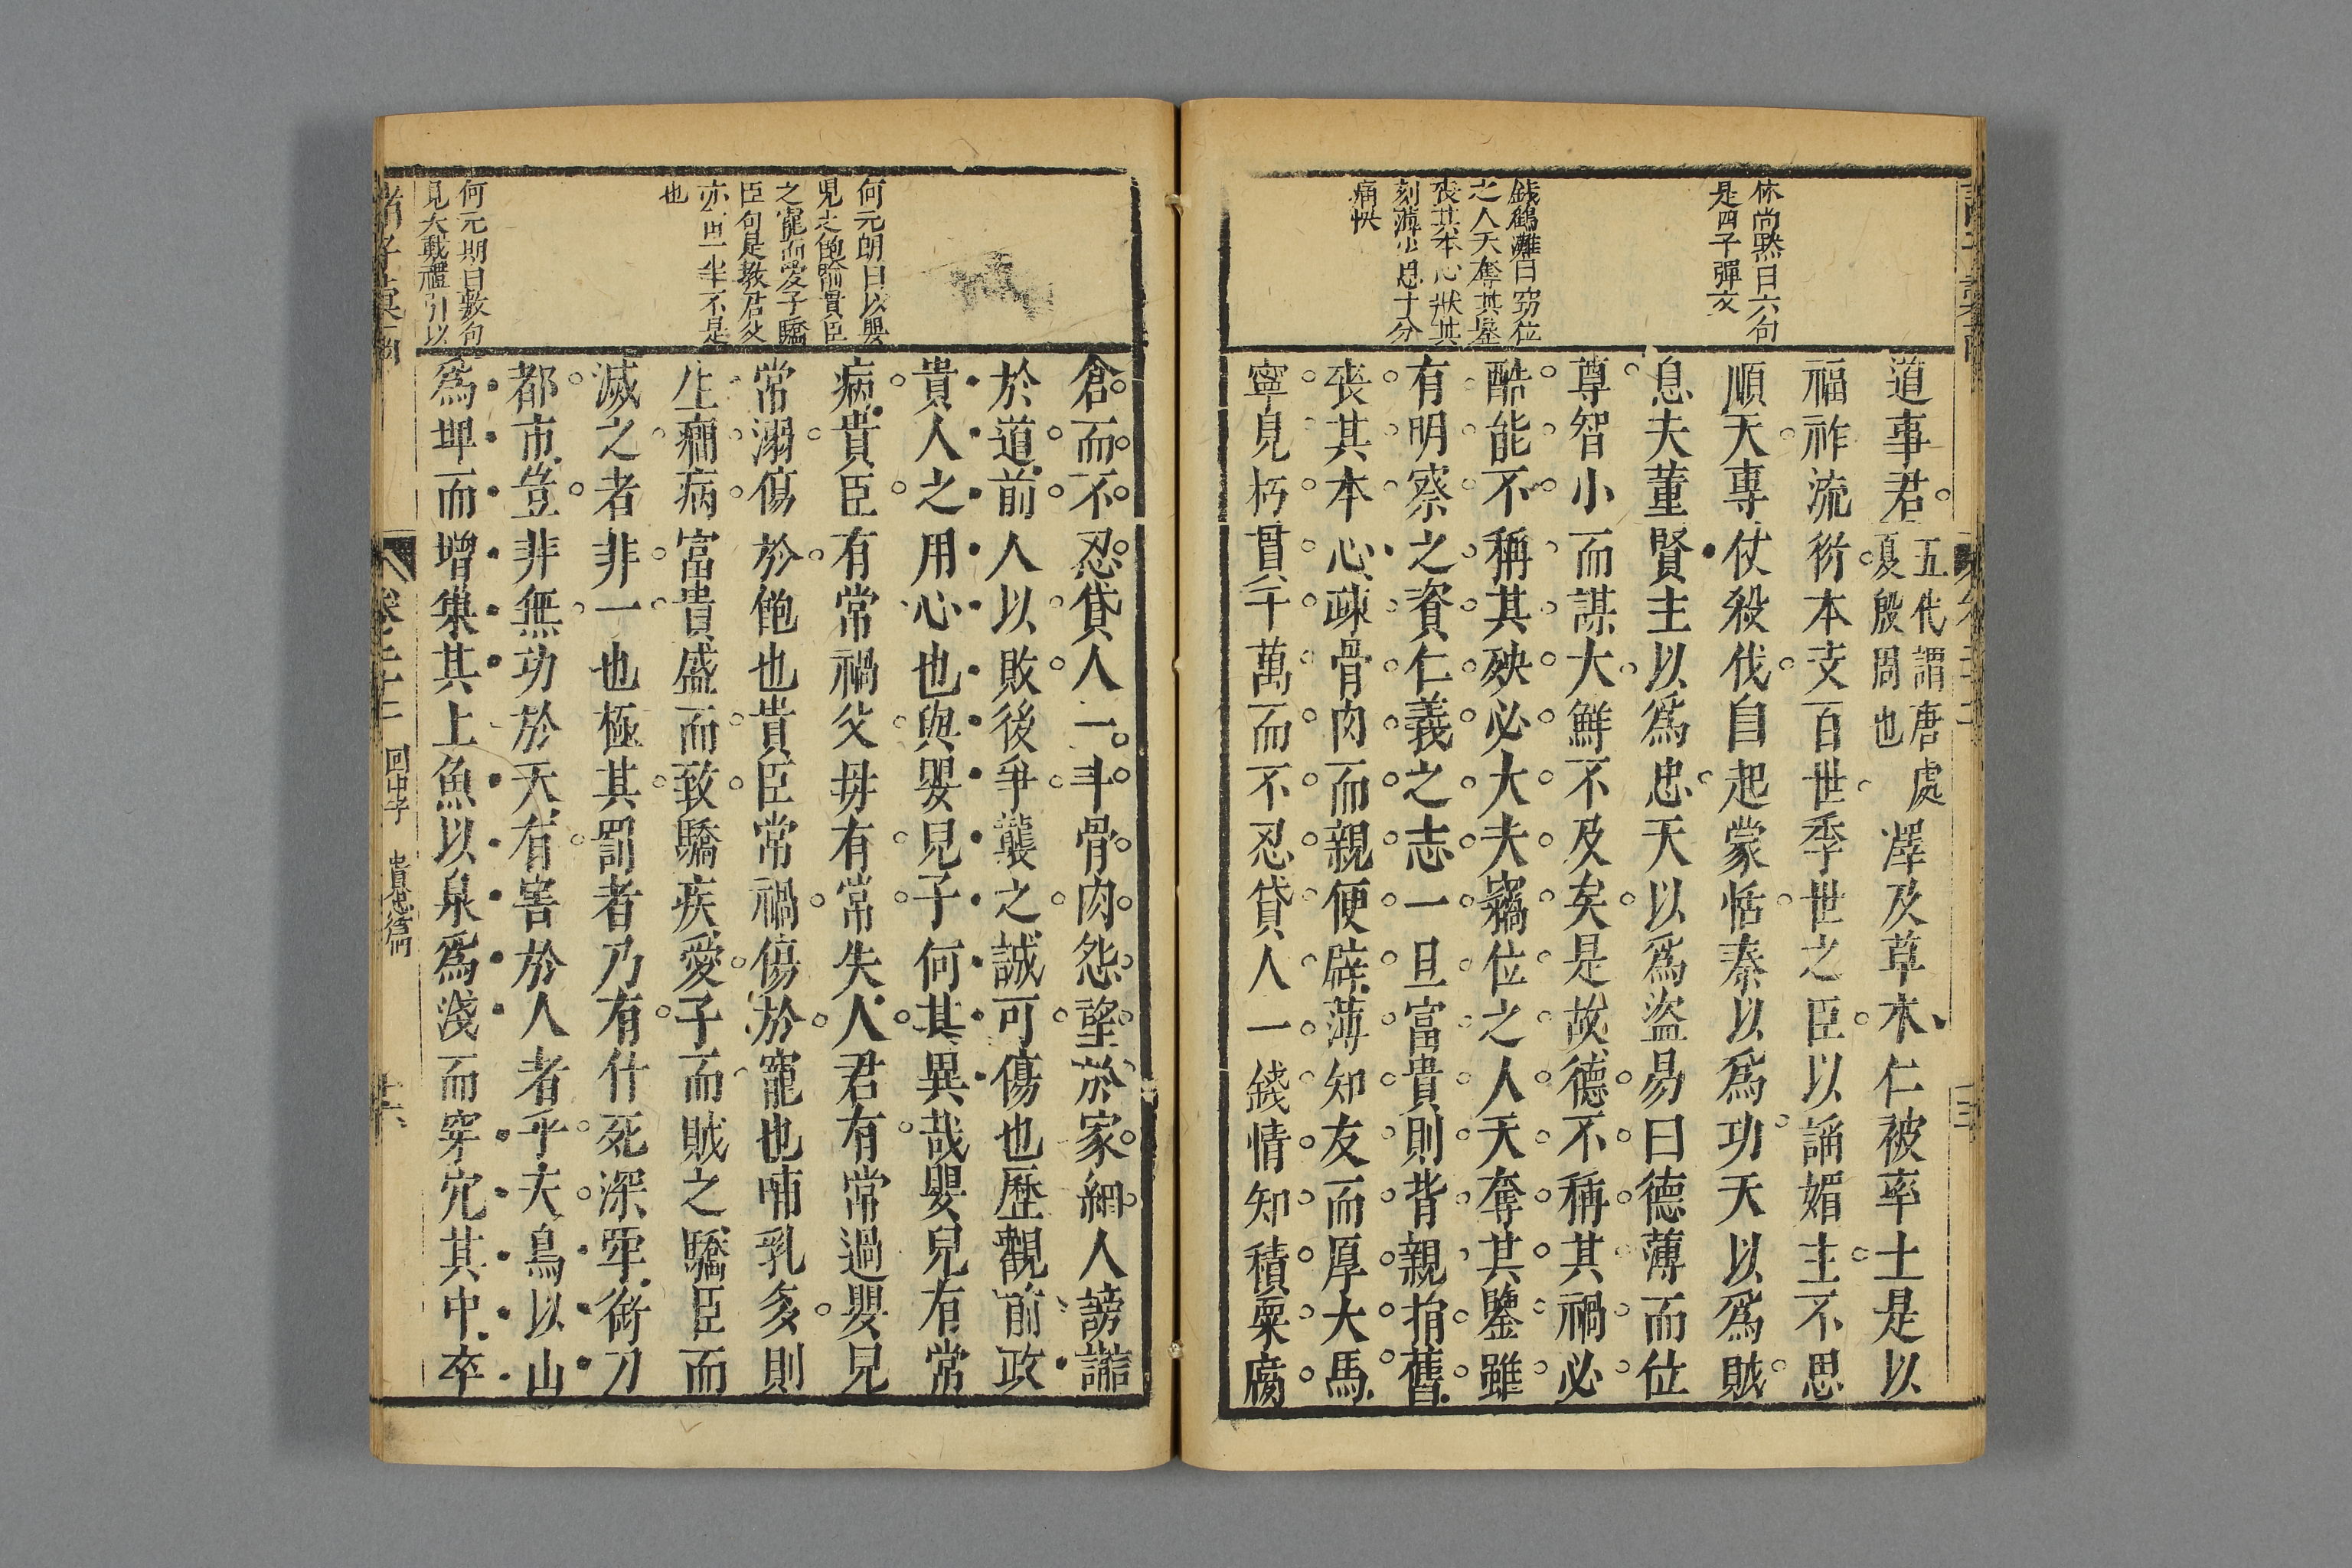 休尚默曰六句
是四子彈文
錢鶴灘曰窃位
之人天奪其鑒
喪其本心狀其
刻薄少恩十分
痛快
道事君五代謂唐虞
夏殷周也
澤及草木仁被率土是以
福祚流衍本支百世季世之臣以謟媚主不思
順天專仗殺伐白起蒙恬秦以爲功天以爲賊
息夫董賢主以爲忠天以爲盜易曰德薄而位
尊智小而謀大鮮不及矣是故德不稱其禍必
酷能不稱其殃必大夫竊位之人天奪其鑒雖
有明察之資仁義之志一旦富貴則背親捐舊
喪其本心疎骨肉而親便辟薄知友而厚犬馬
寧見朽貫千萬而不忍貸人一錢情知積粟腐
何元朗曰以嬰
兒之飽喻貴臣
之寵而愛子驕
臣句是教君父
亦
一半不是
也
何元朗曰數句
見大戴禮引以
倉而不忍貸人一斗骨肉怨望於家細人謗讟
於道前人以敗後爭襲之誠可傷也歷觀前政
貴人之用心也與嬰兒子何其異哉嬰兒有常
病貴臣有常禍父母有常失人君有常過嬰兒
常溺傷於飽也貴臣常禍傷於寵也哺乳多則
生癇病富貴盛而致驕疾愛子而賊之驕臣而
滅之者非一也極其罰者乃有什死深牢銜刀
都市豈非無功於天有害於人者乎夫鳥以山
爲埤而增巢其上魚以泉爲淺而穿穴其中卒
卷二十二
回中子
貴忠篇